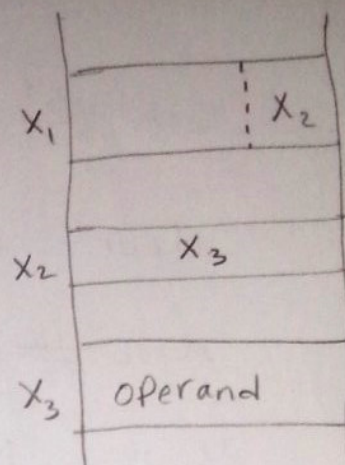 X₁ X₂
X₂ X₃
X₃ operand